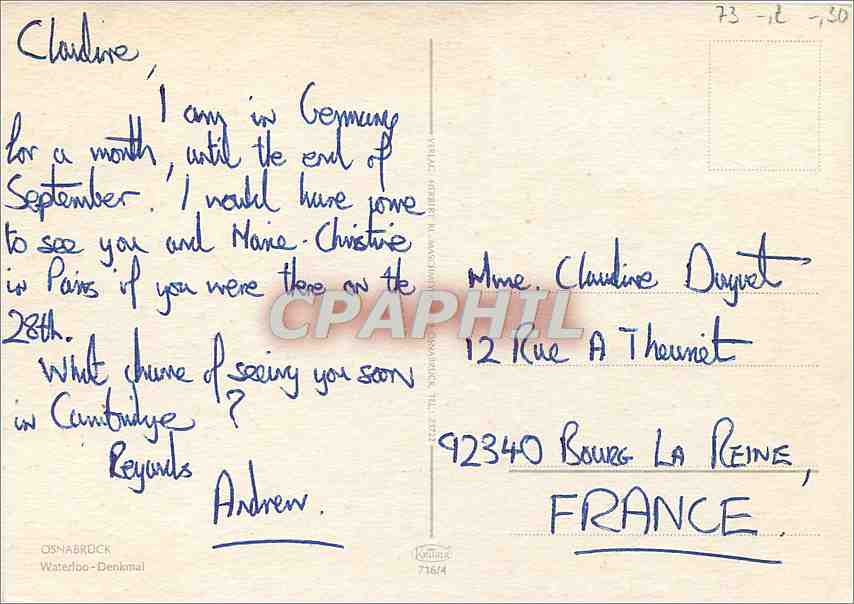 73 -,2 -,30
Claudine,
I am in Germany
for a month, until the end of
September. I would have come
to see you and Marie-Christine
in Paris if you were there on the
28th.
What chance of seeing you soon
in Cambridge?
Regards
Andrew.
Mme. Claudine Duguet
12 Rue A Theuriet
92340 BOURG LA REINE,
FRANCE.
CPAPHIL
OSNABRÜCK
Waterloo-Denkmal
Krüger
716/4